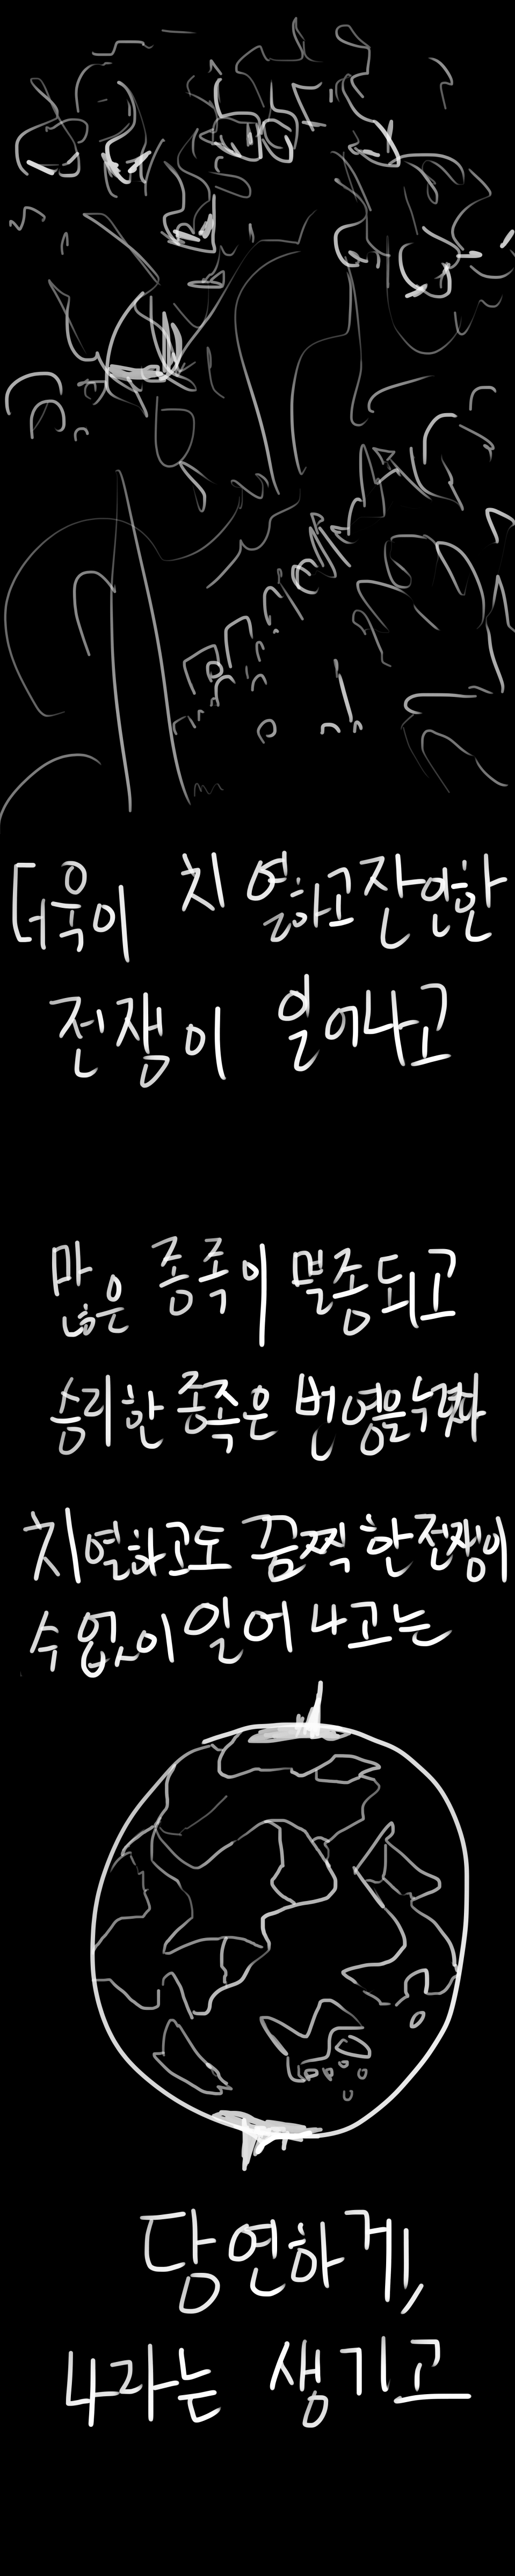 더욱이 치열하고 잔인한
전쟁이 일어나고
많은 종족이 멸종되고
승리한 종족은 번영을 누렸다
치열하고도 끔찍한 전쟁이
수없이 일어나고는
당연하게,
나라는 생기고